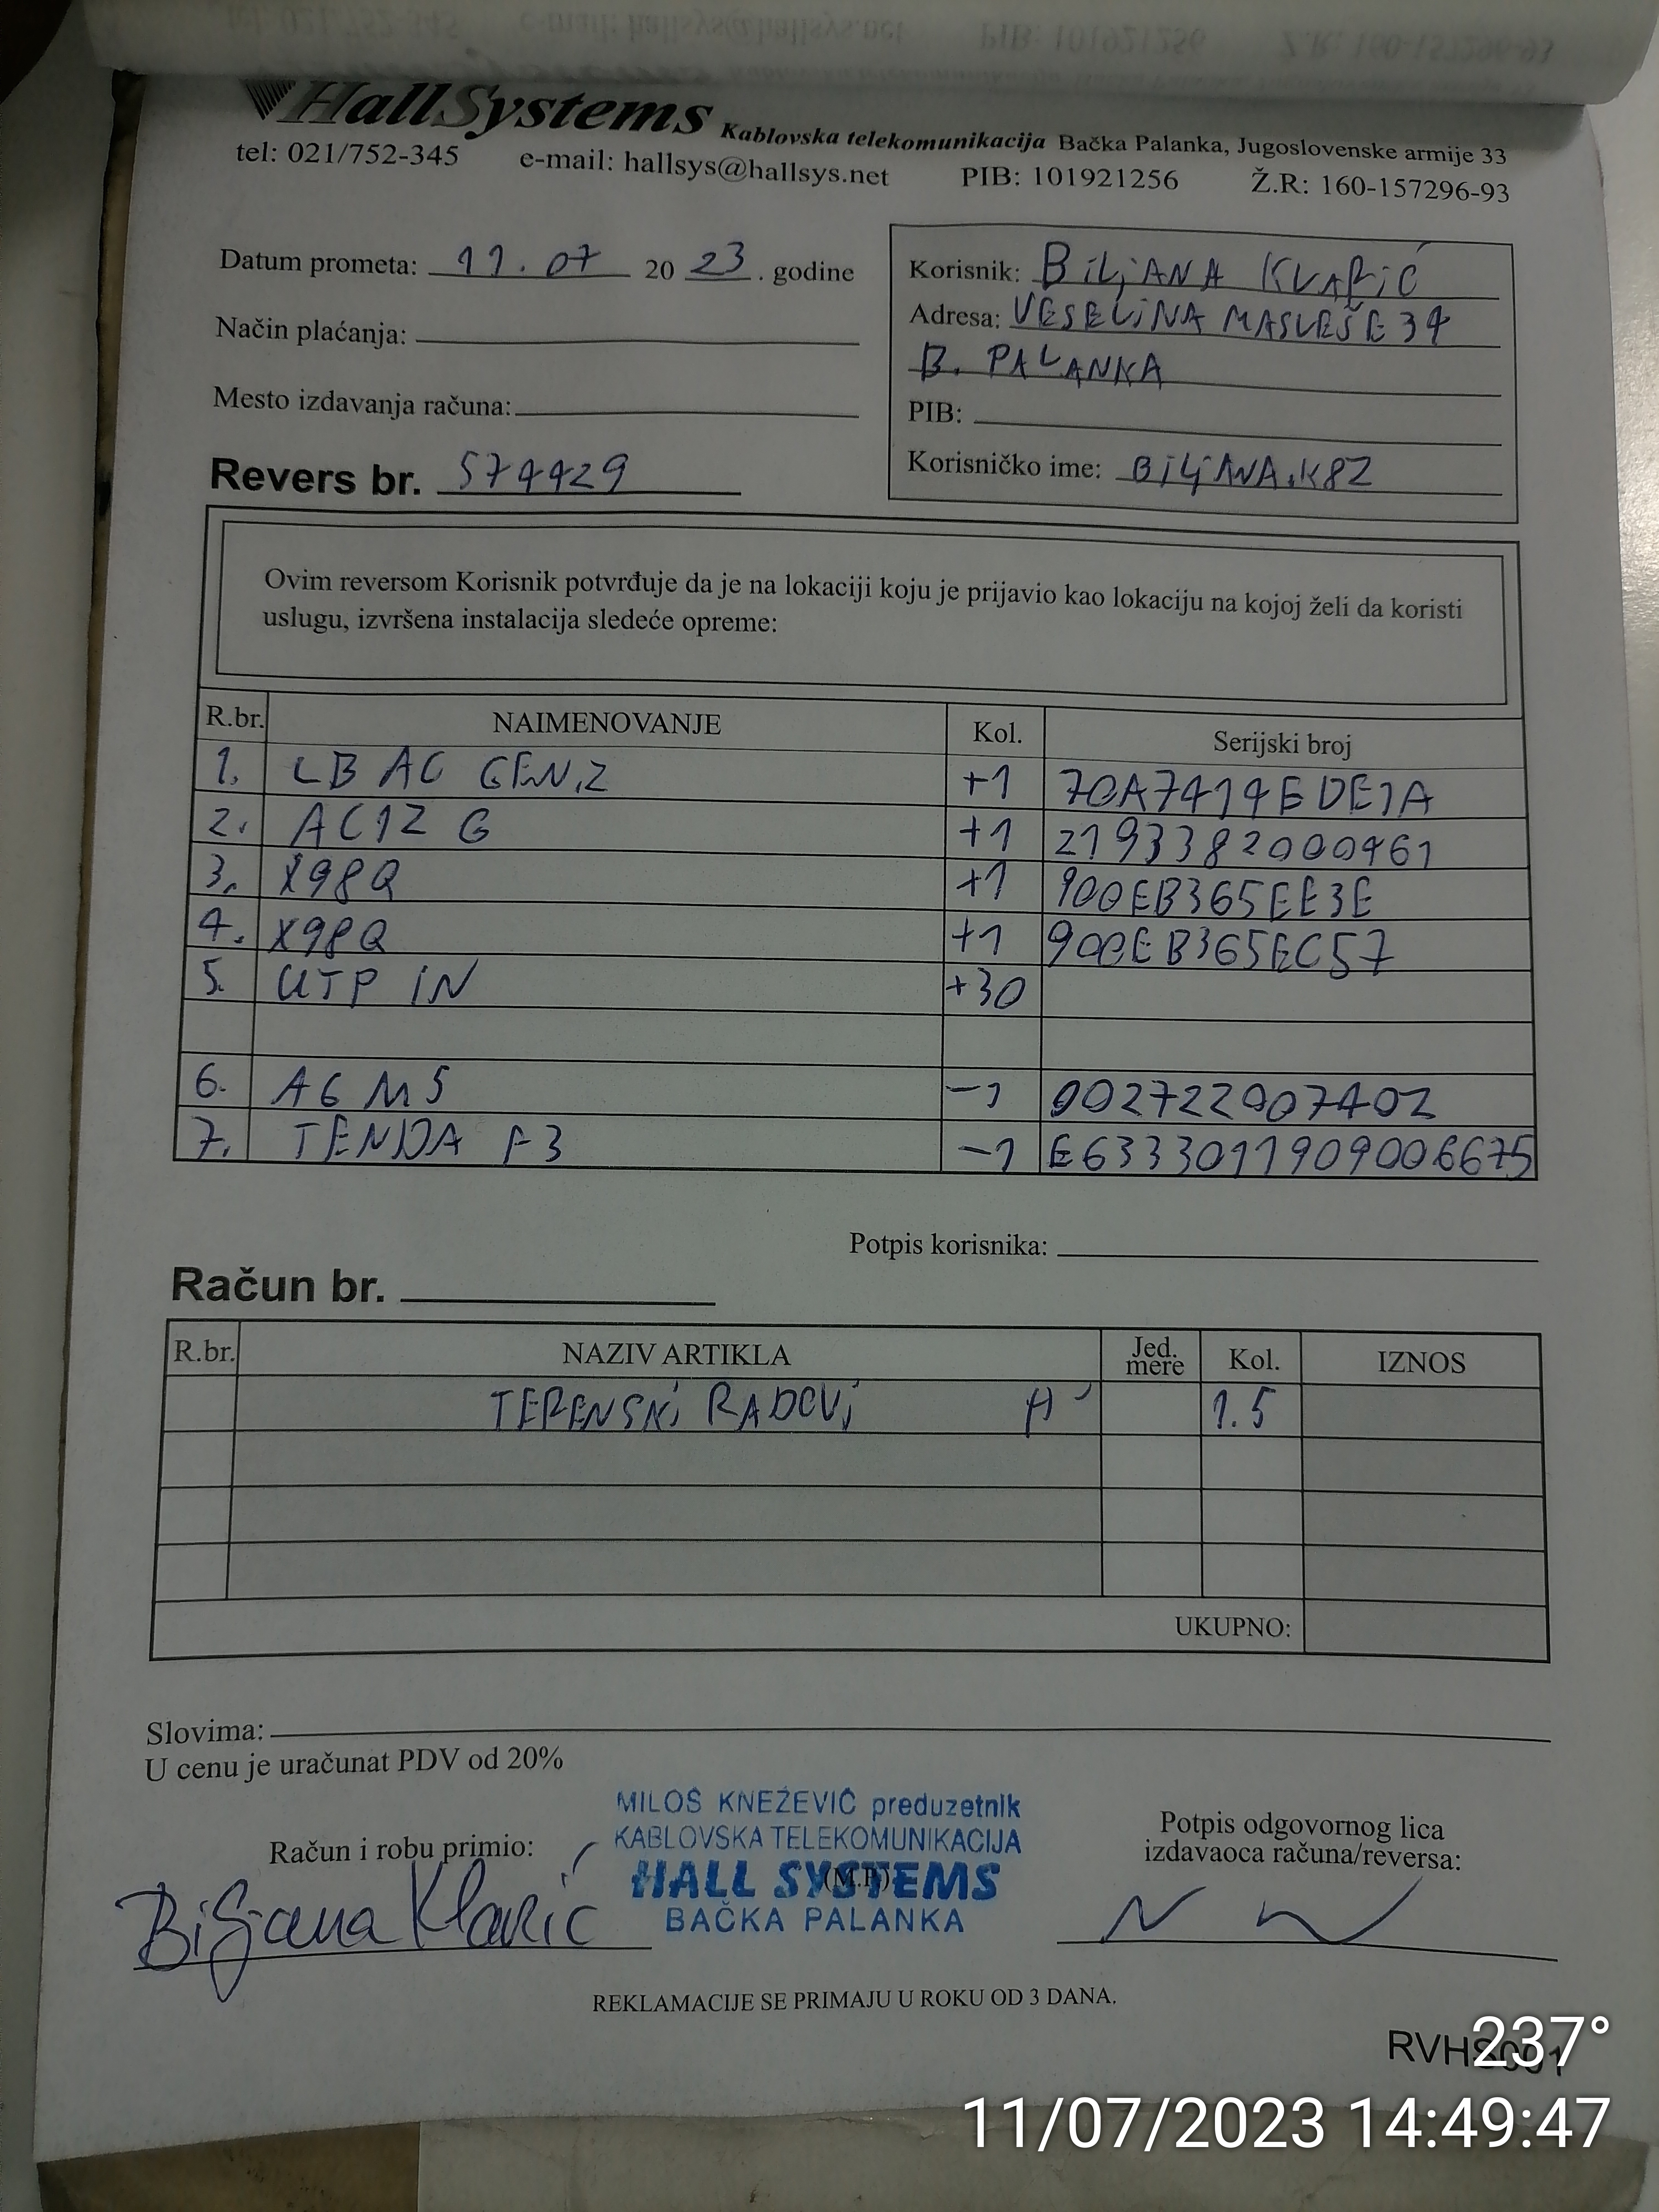 HallSystems Kablovska telekomunikacija Bačka Palanka, Jugoslovenske armije 33
tel: 021/752-345 e-mail: hallsys@hallsys.net PIB: 101921256 Ž.R: 160-157296-93
Datum prometa: 11.07 2023. godine
Način plaćanja:
Mesto izdavanja računa:
Revers br. 574429
Korisnik: BiLjANA KLARiĆ
Adresa: VESELiNA MASLEŠE 34
B. PALANKA
PIB:
Korisničko ime: BiLjANA.K82
Ovim reversom Korisnik potvrđuje da je na lokaciji koju je prijavio kao lokaciju na kojoj želi da koristi
uslugu, izvršena instalacija sledeće opreme:
R.br. NAIMENOVANJE Kol. Serijski broj
1. LB AC GEN.2 +1 70A7414EDE1A
2. AC12 G +1 2193382000461
3. X98Q +1 900EB365EE3E
4. X98Q +1 900EB365EC57
5. UTP IN +30
6. AG M5 -1 002722007402
7. TENDA F3 -1 E6333011909006675
Potpis korisnika:
Račun br.
R.br. NAZIV ARTIKLA Jed. mere Kol. IZNOS
TERENSKi RADOVi H 1.5
UKUPNO:
Slovima:
U cenu je uračunat PDV od 20%
MILOŠ KNEŽEVIĆ preduzetnik
KABLOVSKA TELEKOMUNIKACIJA
HALL SYSTEMS
BAČKA PALANKA
(M.P.)
Račun i robu primio:
Biljana Klarić
Potpis odgovornog lica
izdavaoca računa/reversa:
REKLAMACIJE SE PRIMAJU U ROKU OD 3 DANA.
RVHS001
237°
11/07/2023 14:49:47